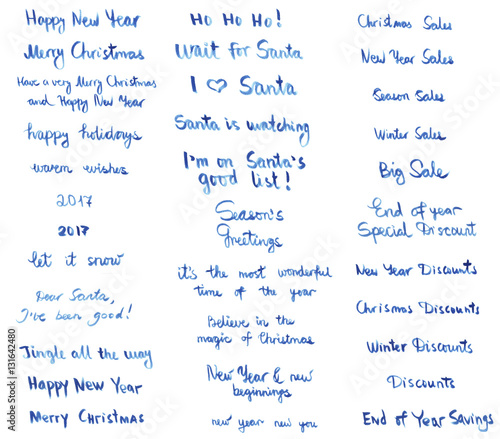 Happy New Year
Merry Christmas
Have a very Merry Christmas
and Happy New Year
happy holidays
warm wishes
2017
2017
let it snow
Dear Santa,
I've been good!
Jingle all the way
Happy New Year
Merry Christmas
Ho Ho Ho!
Wait for Santa
I ♡ Santa
Santa is watching
I'm on Santa's
good list!
Season's
Greetings
it's the most wonderful
time of the year
Believe in the
magic of Christmas
New Year & new
beginnings
new year new you
Christmas Sales
New Year Sales
Season Sales
Winter Sales
Big Sale
End of year
Special Discount
New Year Discounts
Chrismas Discounts
Winter Discounts
Discounts
End of Year Savings
131642480
Adobe Stock